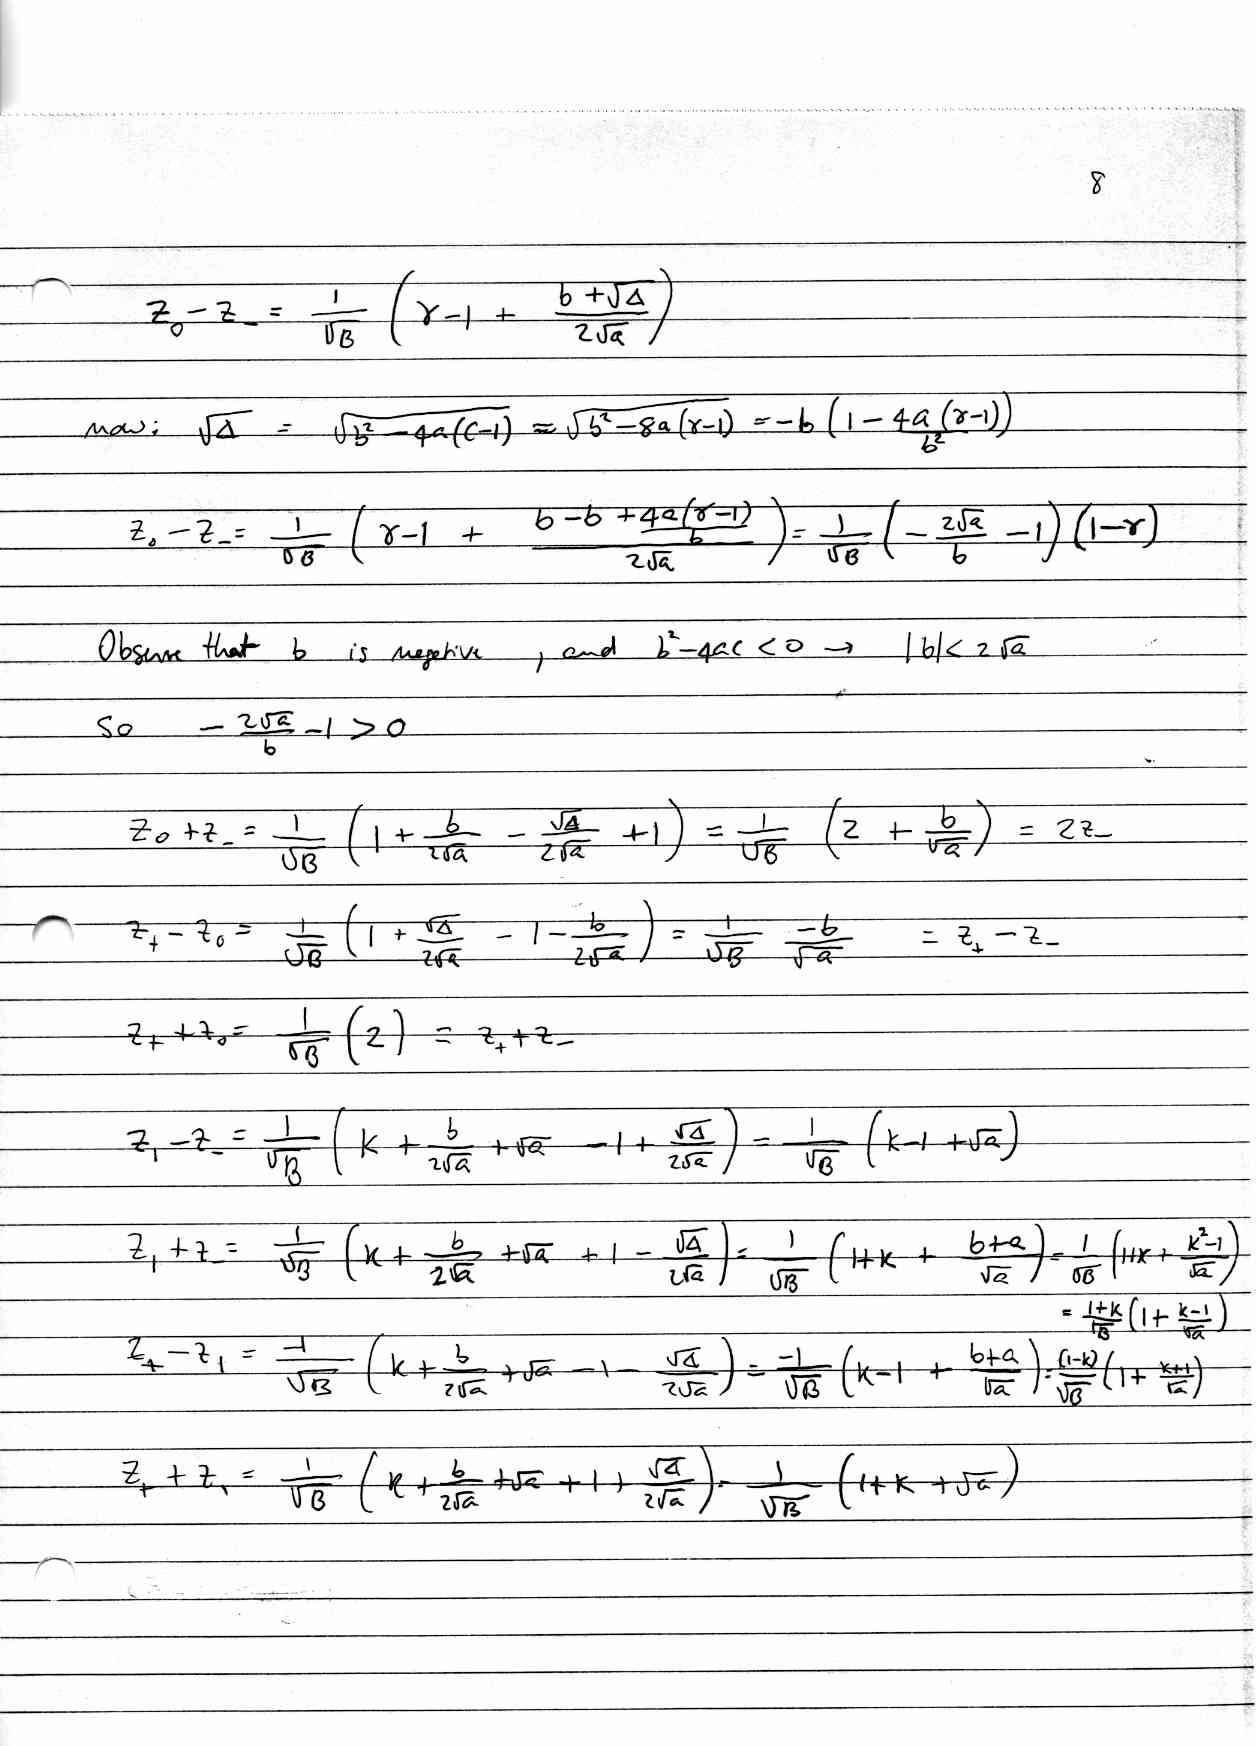 8
z₀ − z₋ = 1/√B (γ−1 + (b+√Δ)/(2√a))
now: √Δ = √(b²−4a(c−1)) ≈ √(b²−8a(γ−1)) = −b (1 − 4a(γ−1)/b²)
z₀ − z₋ = 1/√B (γ−1 + (b−b+4a(γ−1)/b)/(2√a)) = 1/√B (−2√a/b −1)(1−γ)
Observe that b is negative, and b²−4ac < 0 → |b| < 2√a
So −2√a/b −1 > 0
z₀ + z₋ = 1/√B (1 + b/(2√a) − √Δ/(2√a) + 1) = 1/√B (2 + b/√a) = 2z₋
z₊ − z₀ = 1/√B (1 + √Δ/(2√a) − 1 − b/(2√a)) = 1/√B −b/√a = z₊ − z₋
z₊ + z₀ = 1/√B (2) = z₊ + z₋
z₁ − z₋ = 1/√B (k + b/(2√a) + √a − 1 + √Δ/(2√a)) = 1/√B (k−1+√a)
z₁ + z₋ = 1/√B (k + b/(2√a) + √a + 1 − √Δ/(2√a)) = 1/√B (1+k + (b+a)/√a) = 1/√B (1+k + (k²−1)/√a)
= (1+k)/√B (1 + (k−1)/√a)
z₊ − z₁ = −1/√B (k + b/(2√a) + √a − 1 − √Δ/(2√a)) = −1/√B (k−1 + (b+a)/√a) = (1−k)/√B (1 + (k+1)/√a)
z₊ + z₁ = 1/√B (k + b/(2√a) + √a + 1 + √Δ/(2√a)) = 1/√B (1+k+√a)